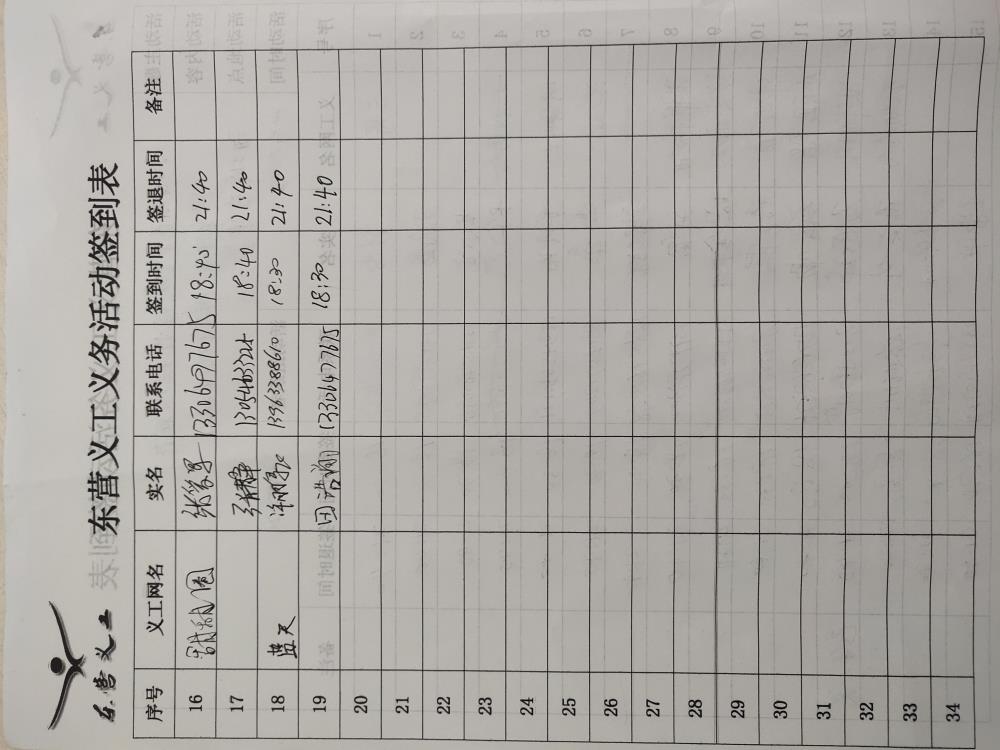 东营义工
东营义工义务活动签到表
序号 义工网名 实名 联系电话 签到时间 签退时间 备注
16 18:40 21:40
17 张静 18:40 21:40
18 蓝天 13963388610 18:30 21:40
19 田浩翔 13306477675 18:30 21:40
20
21
22
23
24
25
26
27
28
29
30
31
32
33
34